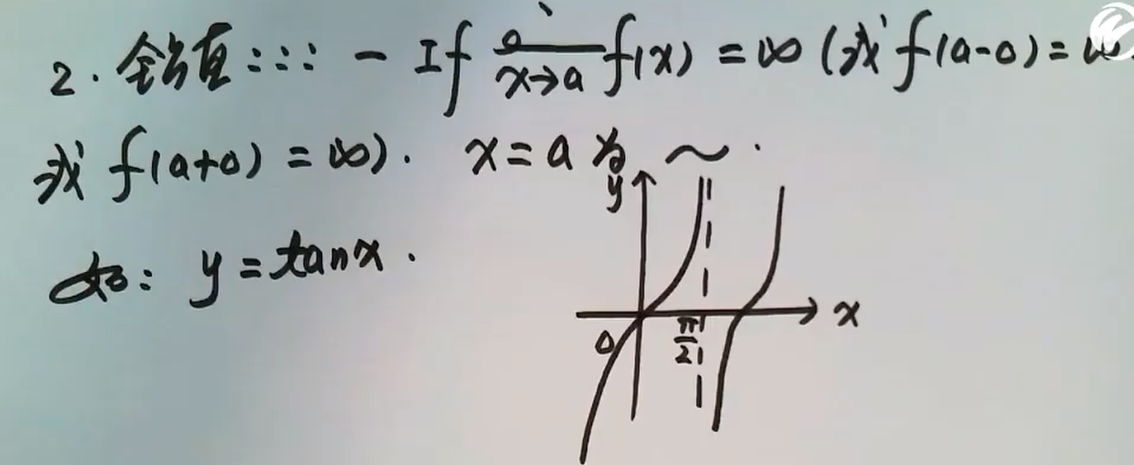 2. 铅直::: - If lim x→a f(x) = ∞ (或 f(a-0) = ∞
或 f(a+0) = ∞). x = a 为 ~.
如: y = tanx.
y
x
0
π/2